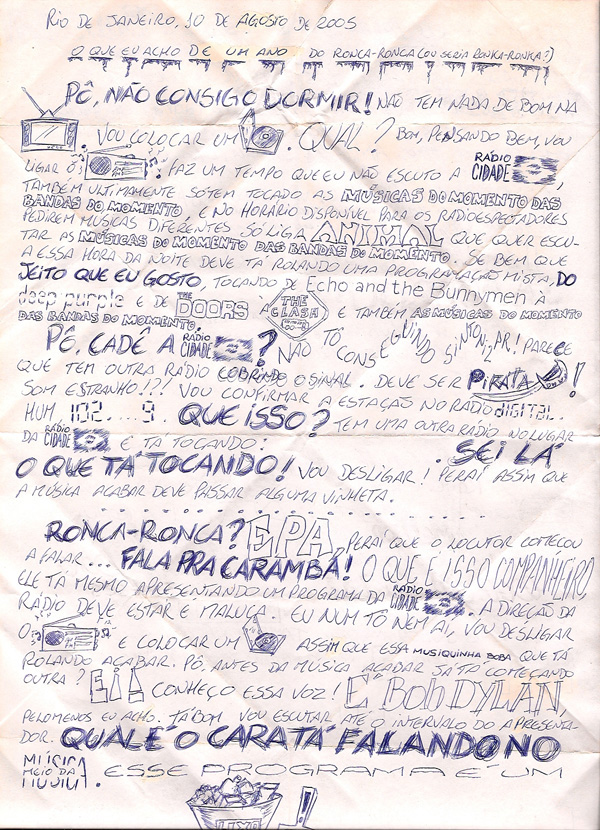 RIO DE JANEIRO, 10 DE AGOSTO DE 2005
O QUE EU ACHO DE UM ANO DO RONCA-RONCA (OU SERIA RONKA-RONKA?)
PÔ, NÃO CONSIGO DORMIR! NÃO TEM NADA DE BOM NA
VOU COLOCAR UM . QUAL? BOM, PENSANDO BEM, VOU
LIGAR O FAZ UM TEMPO QUE EU NÃO ESCUTO A RÁDIO CIDADE,
TAMBÉM ULTIMAMENTE SÓ TEM TOCADO AS MÚSICAS DO MOMENTO DAS
BANDAS DO MOMENTO, E NO HORÁRIO DISPONÍVEL PARA OS RADIOESPECTADORES
PEDIREM MÚSICAS DIFERENTES SÓ LIGA ANIMAL QUE QUER ESCU-
TAR AS MÚSICAS DO MOMENTO DAS BANDAS DO MOMENTO. SE BEM QUE
A ESSA HORA DA NOITE DEVE TÁ ROLANDO UMA PROGRAMAÇÃO MISTA, DO
JEITO QUE EU GOSTO, TOCANDO DE Echo and the Bunnymen À
deep purple E DE THE DOORS À THE CLASH E TAMBÉM AS MÚSICAS DO MOMENTO
DAS BANDAS DO MOMENTO.
PÔ, CADÊ A RÁDIO CIDADE? NÃO TÔ CONSEGUINDO SINTONIZAR! PARECE
QUE TEM OUTRA RÁDIO COBRINDO O SINAL. DEVE SER PIRATA!
SOM ESTRANHO!?! VOU CONFIRMAR A ESTAÇÃO NO RÁDIO DIGITAL.
HUM 102....9. QUE ISSO? TEM UMA OUTRA RÁDIO NO LUGAR
DA RÁDIO CIDADE E TÁ TOCANDO: . SEI LÁ
O QUE TÁ TOCANDO! VOU DESLIGAR! PERAÍ ASSIM QUE
A MÚSICA ACABAR DEVE PASSAR ALGUMA VINHETA.
RONCA-RONCA? EPA, PERAÍ QUE O LOCUTOR COMEÇOU
A FALAR... FALA PRA CARAMBA! O QUE É ISSO COMPANHEIRO,
ELE TÁ MESMO APRESENTANDO UM PROGRAMA DA RÁDIO CIDADE. A DIREÇÃO DA
RÁDIO DEVE ESTAR E MALUCA. EU NUM TÔ NEM AÍ, VOU DESLIGAR
O E COLOCAR UM ASSIM QUE ESSA MUSIQUINHA BOBA QUE TÁ
ROLANDO ACABAR. PÔ, ANTES DA MÚSICA ACABAR JÁ TÁ COMEÇANDO
OUTRA? EI! CONHEÇO ESSA VOZ! É Bob DYLAN,
PELO MENOS EU ACHO. TÁ BOM VOU ESCUTAR ATÉ O INTERVALO DO APRESENTA-
DOR. QUALÉ O CARA TÁ FALANDO NO
MEIO DA MÚSICA. ESSE PROGRAMA É UM
LIXO !